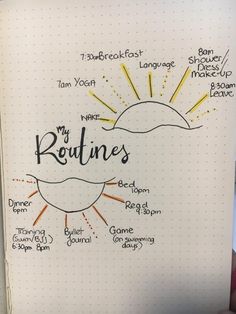 7:30am Breakfast
Language
8am
Shower/
Dress/
Make-up
7am YOGA
8:30am
Leave
WAKE
My
Routines
Bed
10pm
Read
9:30pm
Dinner
6pm
Training
(Swim/BJJ)
6:30pm 8pm
Bullet
Journal
Game
(on swimming
days)